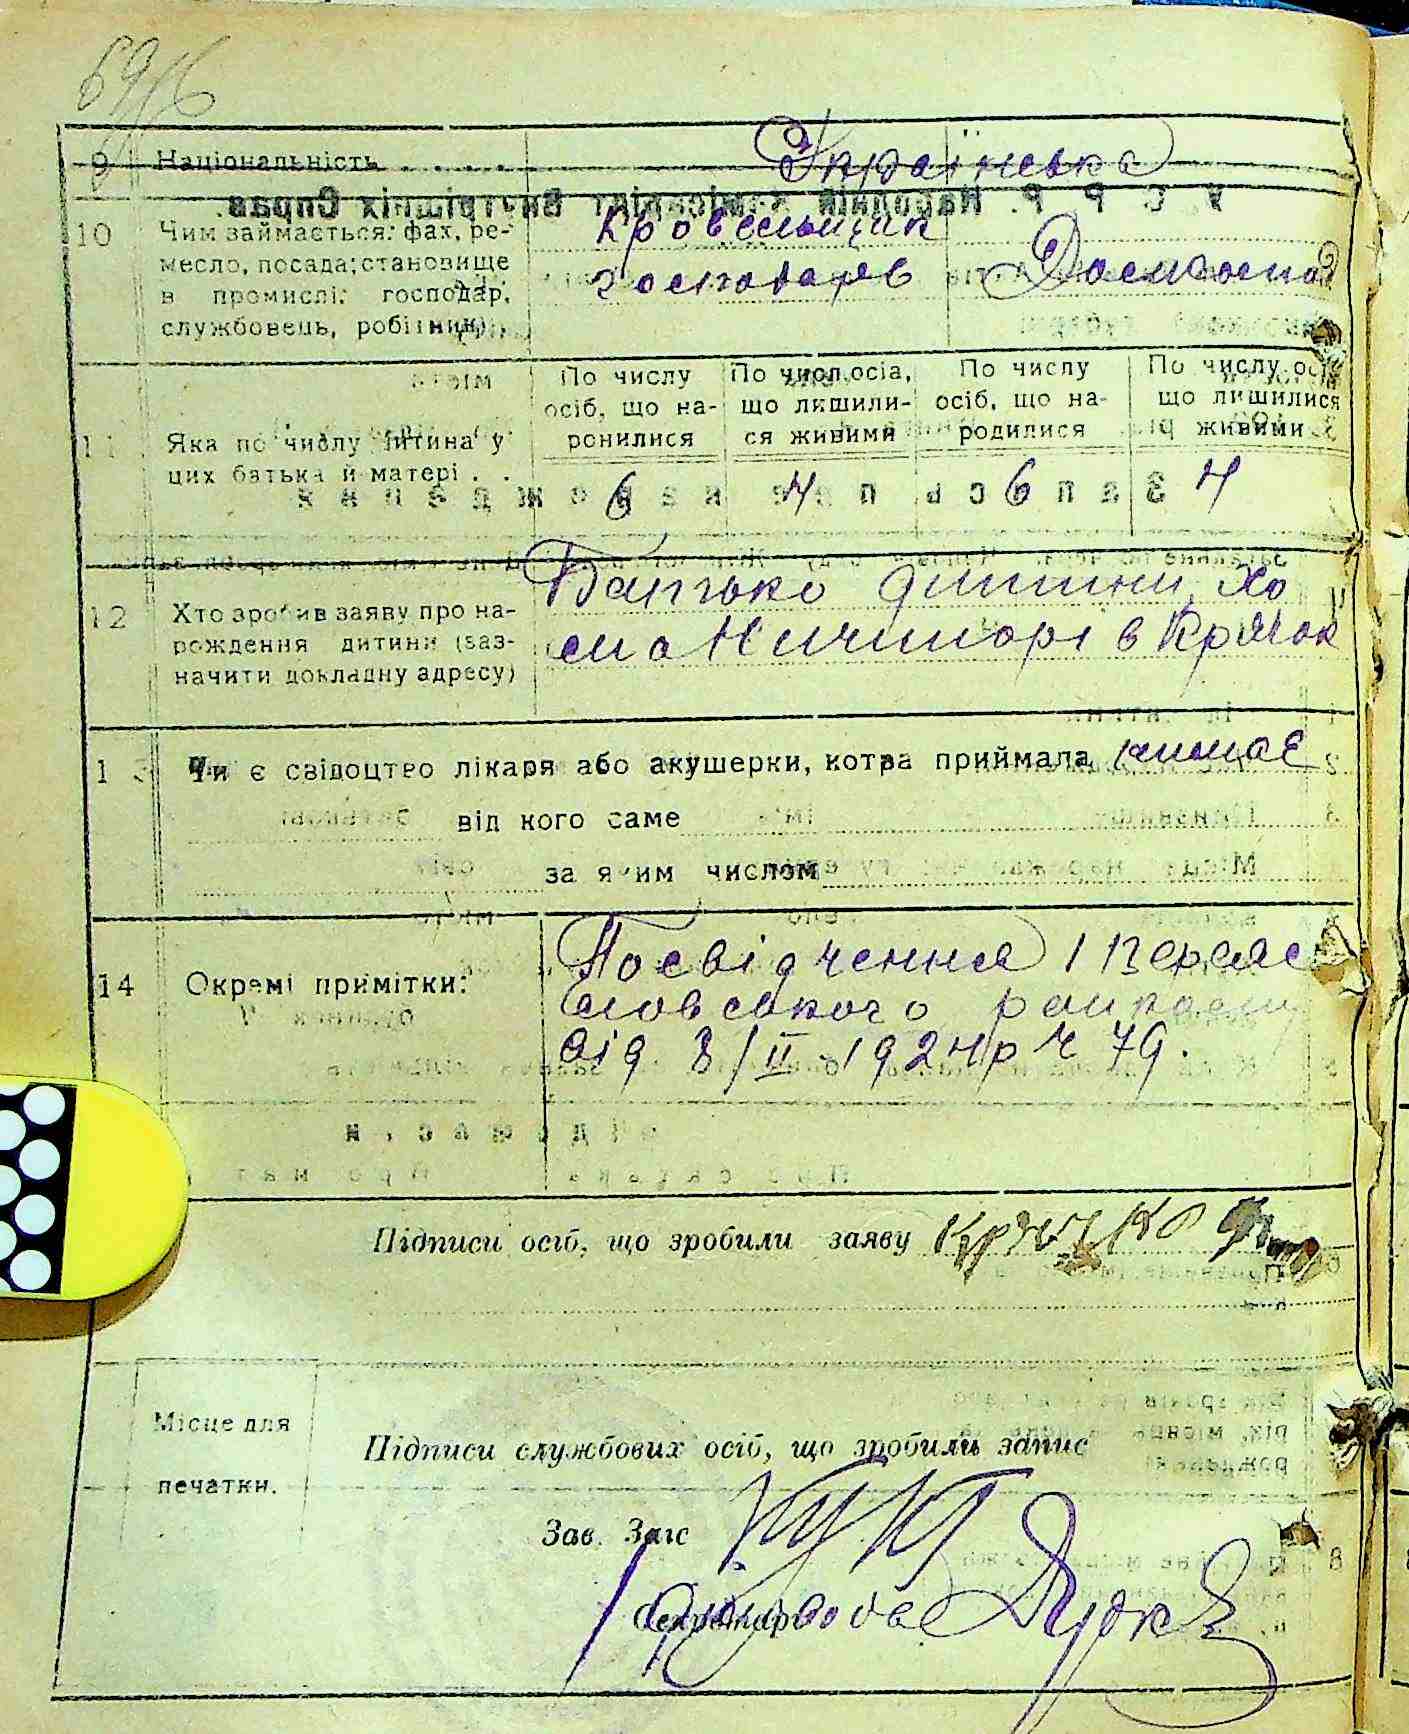 9 Національність . . . . . Українська
10 Чим займається: фах, ре-
месло, посада; становище
в промислі: господар,
службовець, робітник) .
Кровельщик
господарь
11 Яка по числу дитина у
цих батька й матері . .
По числу
осіб, що на-
ронилися
По числ.осіа,
що лишили-
ся живими
По числу
осіб, що на-
родилися
По числу осіб
що лишилися
живими
6 4 6 4
12 Хто зробив заяву про на-
рождення дитини (заз-
начити докладну адресу)
Батько дитини, хо
1 3 Чи є свідоцтво лікаря або акушерки, котра приймала немає
від кого саме
за яким числом
14 Окремі примітки:
Посвідчення
від 8/II 1924 р ч 79.
Підписи осіб, що зробили заяву
Місце для
печатки.
Підписи службових осіб, що зробили запис
Зав. Загс
Секретар